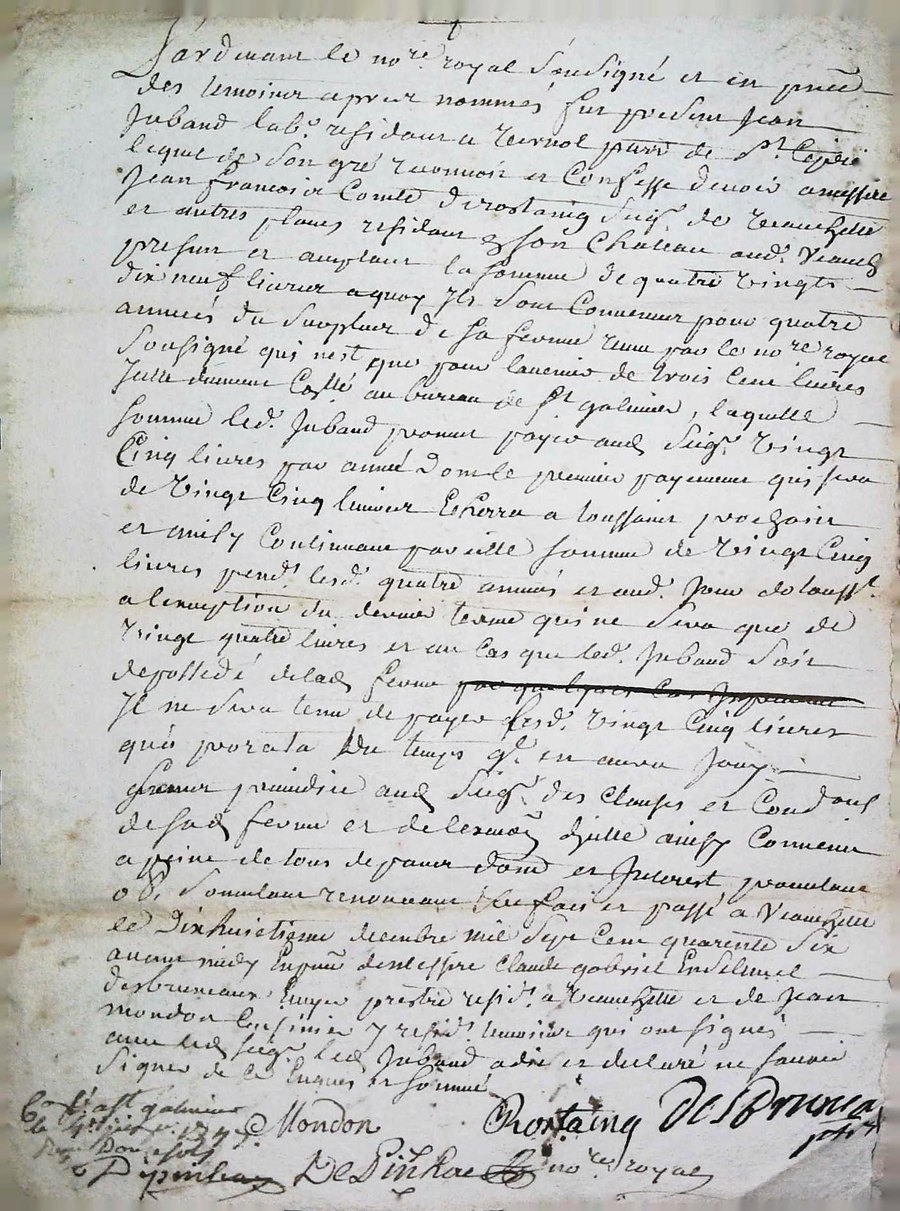 Pardevant le no.re royal sousigné et en pnce
des temoins apres nommés fut present Jean
Juband lab.r residant a Vernol parr.e de St.
lequel de son gré reconnoit et confesse devoir a messire
Jean françois Comte de rostaing seig.r de Veauchette
et autres places residant en son Chateau aud. Veauch
present et acceptant la somme de quatre vingts
dix neuf livres a quoy ils sont convenus pour quatre
années du surplus de sa ferme receu par le no.re royal
sousigné qui nest que pour lannuité de trois cent livres
Jcelle dument Collé au bureau de St galmier, laquelle
somme led. Juband promet payer aud seig.r vingt
Cinq livres par année dont le premier payement qui sera
de vingt Cinq livres Echerra a toussaint prochain
et ainsy Continuant pareille somme de vingt Cinq
livres pend.t lesd. quatre années et aud. Jour de touss.t
a lexception du dernier terme qui ne sera que de
vingt quatre livres et au Cas que led. Juband soit
depossedé de lad ferme
Jl ne sera tenu de payer lesd. vingt Cinq livres
qua prorata du temps q.l en aura Jouy
sans prejudice aud seig.r des clauses et Condons
de sad ferme et de lexaon dicelle ainsy Convenu
a peine de tous depans dom et Jnterest promettant
obl. soumettant renonçant &c fait et passé a Veauchette
le Dix huictieme decembre mil sept cent quarente six
avant midy En pnce de messire Claude gabriel
desbruneaux prestre resid.t a Veauchette et de Jean
mondon Cuisinier y resid.t temoins qui ont signés
avec led seig.r led Juband a de ce declaré ne savoir
signer de ce Enquis et sommé
Mondon Rostaing DesBrunea
ptre
DePinhac no.re royal